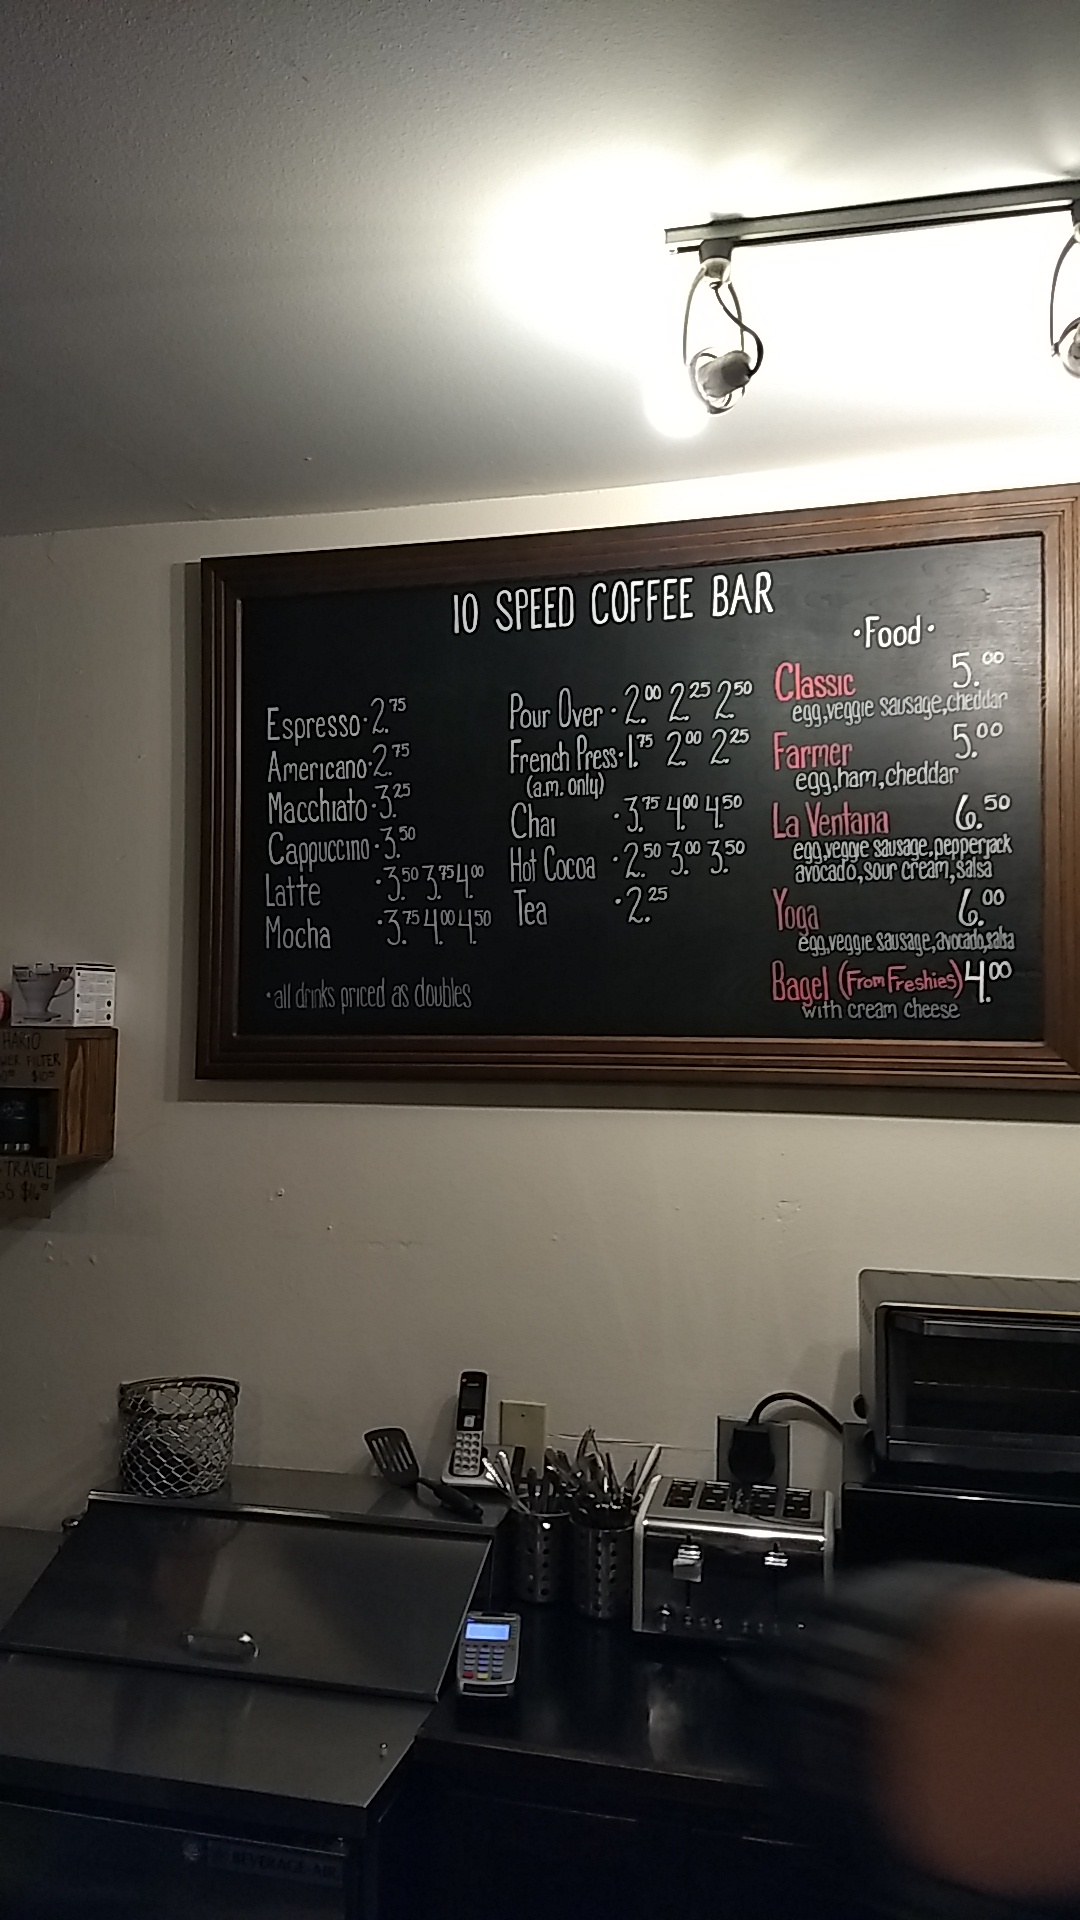 10 SPEED COFFEE BAR
Espresso · 2.75
Americano · 2.75
Macchiato · 3.25
Cappuccino · 3.50
Latte · 3.50 3.75 4.00
Mocha · 3.75 4.00 4.50
· all drinks priced as doubles
Pour Over · 2.00 2.25 2.50
French Press · 1.75 2.00 2.25
(a.m. only)
Chai · 3.75 4.00 4.50
Hot Cocoa · 2.50 3.00 3.50
Tea · 2.25
· Food ·
Classic 5.00
egg, veggie sausage, cheddar
Farmer 5.00
egg, ham, cheddar
La Ventana 6.50
egg, veggie sausage, pepperjack
avocado, sour cream, salsa
Yoga 6.00
egg, veggie sausage, avocado, salsa
Bagel (From Freshies) 4.00
with cream cheese
HARIO
FILTER
TRAVEL
BEVERAGE-AIR